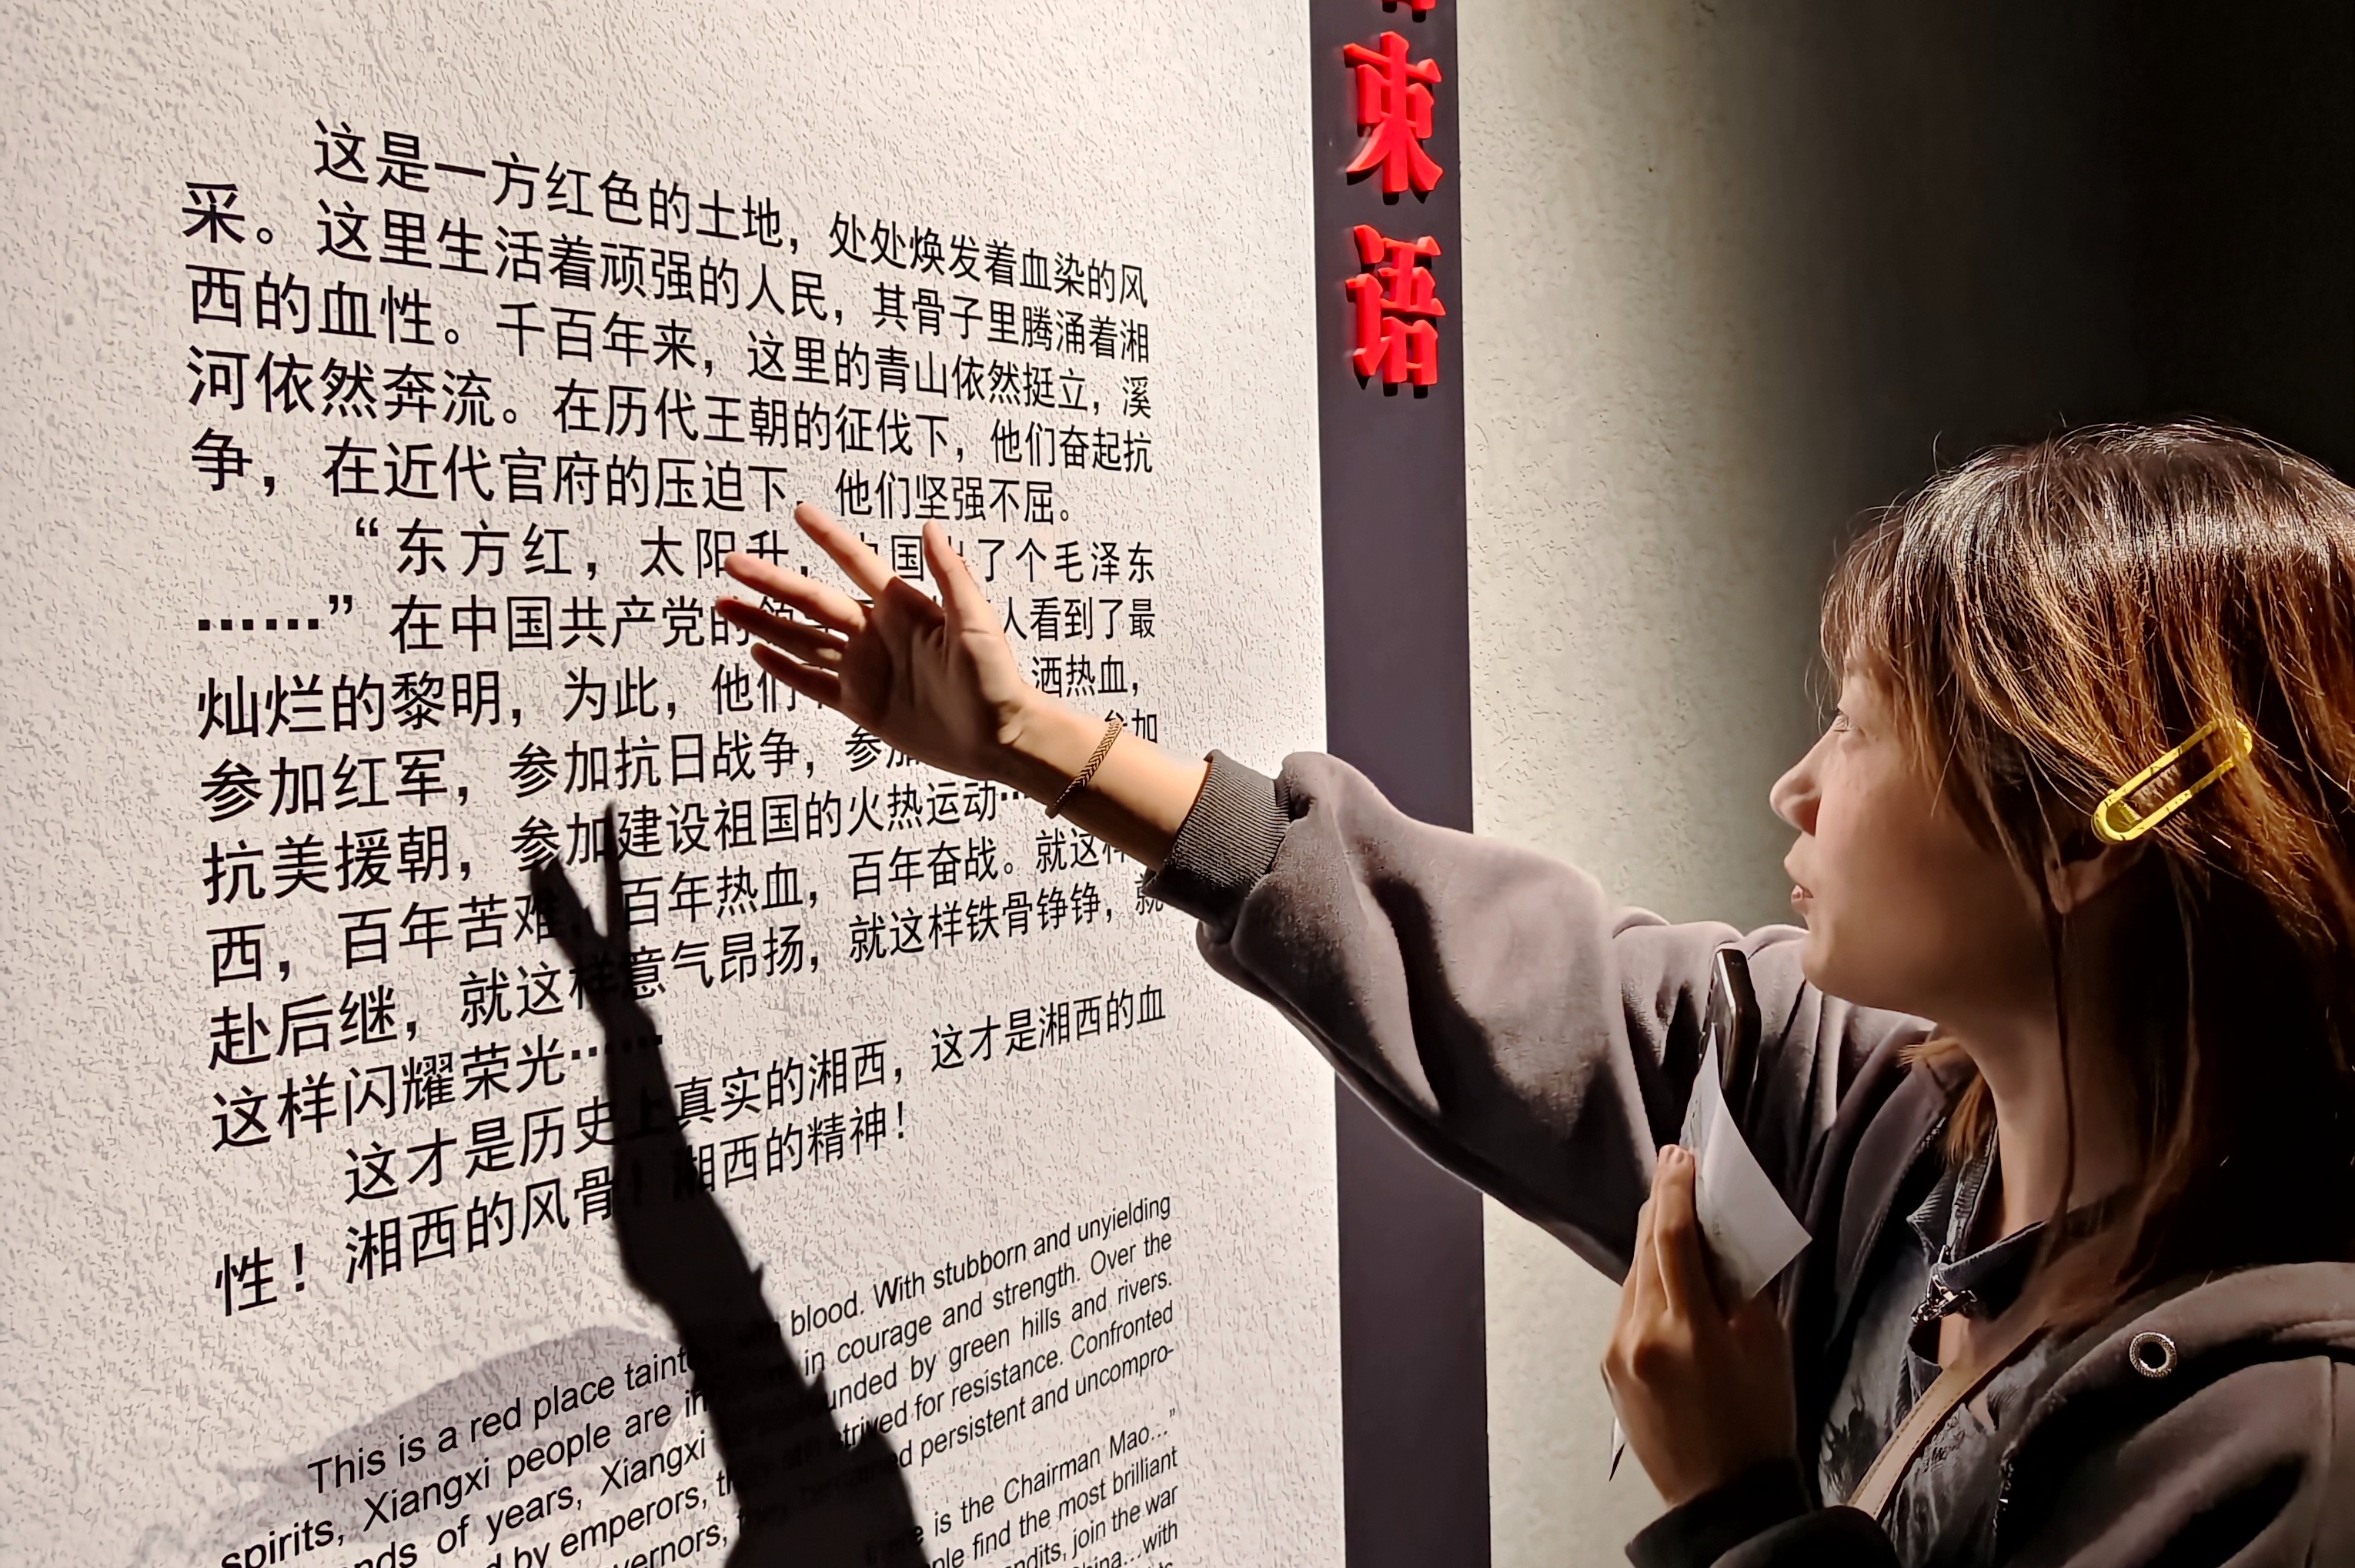 束
语
这是一方红色的土地，处处焕发着血染的风
采。这里生活着顽强的人民，其骨子里腾涌着湘
西的血性。千百年来，这里的青山依然挺立，溪
河依然奔流。在历代王朝的征伐下，他们奋起抗
争，在近代官府的压迫下，他们坚强不屈。
“东方红，太阳升，中国出了个毛泽东
……”在中国共产党的领 人看到了最
灿烂的黎明，为此，他们 洒热血，
参加红军，参加抗日战争，参加 参加
抗美援朝，参加建设祖国的火热运动…
西，百年苦难，百年热血，百年奋战。就这样
赴后继，就这样意气昂扬，就这样铁骨铮铮，就
这样闪耀荣光……
这才是历史上真实的湘西，这才是湘西的血
性！湘西的风骨！湘西的精神！
This is a red place tainted with blood. With stubborn and unyielding
spirits, Xiangxi people are in courage and strength. Over the
of years, Xiangxi by green hills and rivers.
by emperors, strived for resistance. Confronted
persistent and uncompro-
is the Chairman Mao…”
find the most brilliant
join the war
with